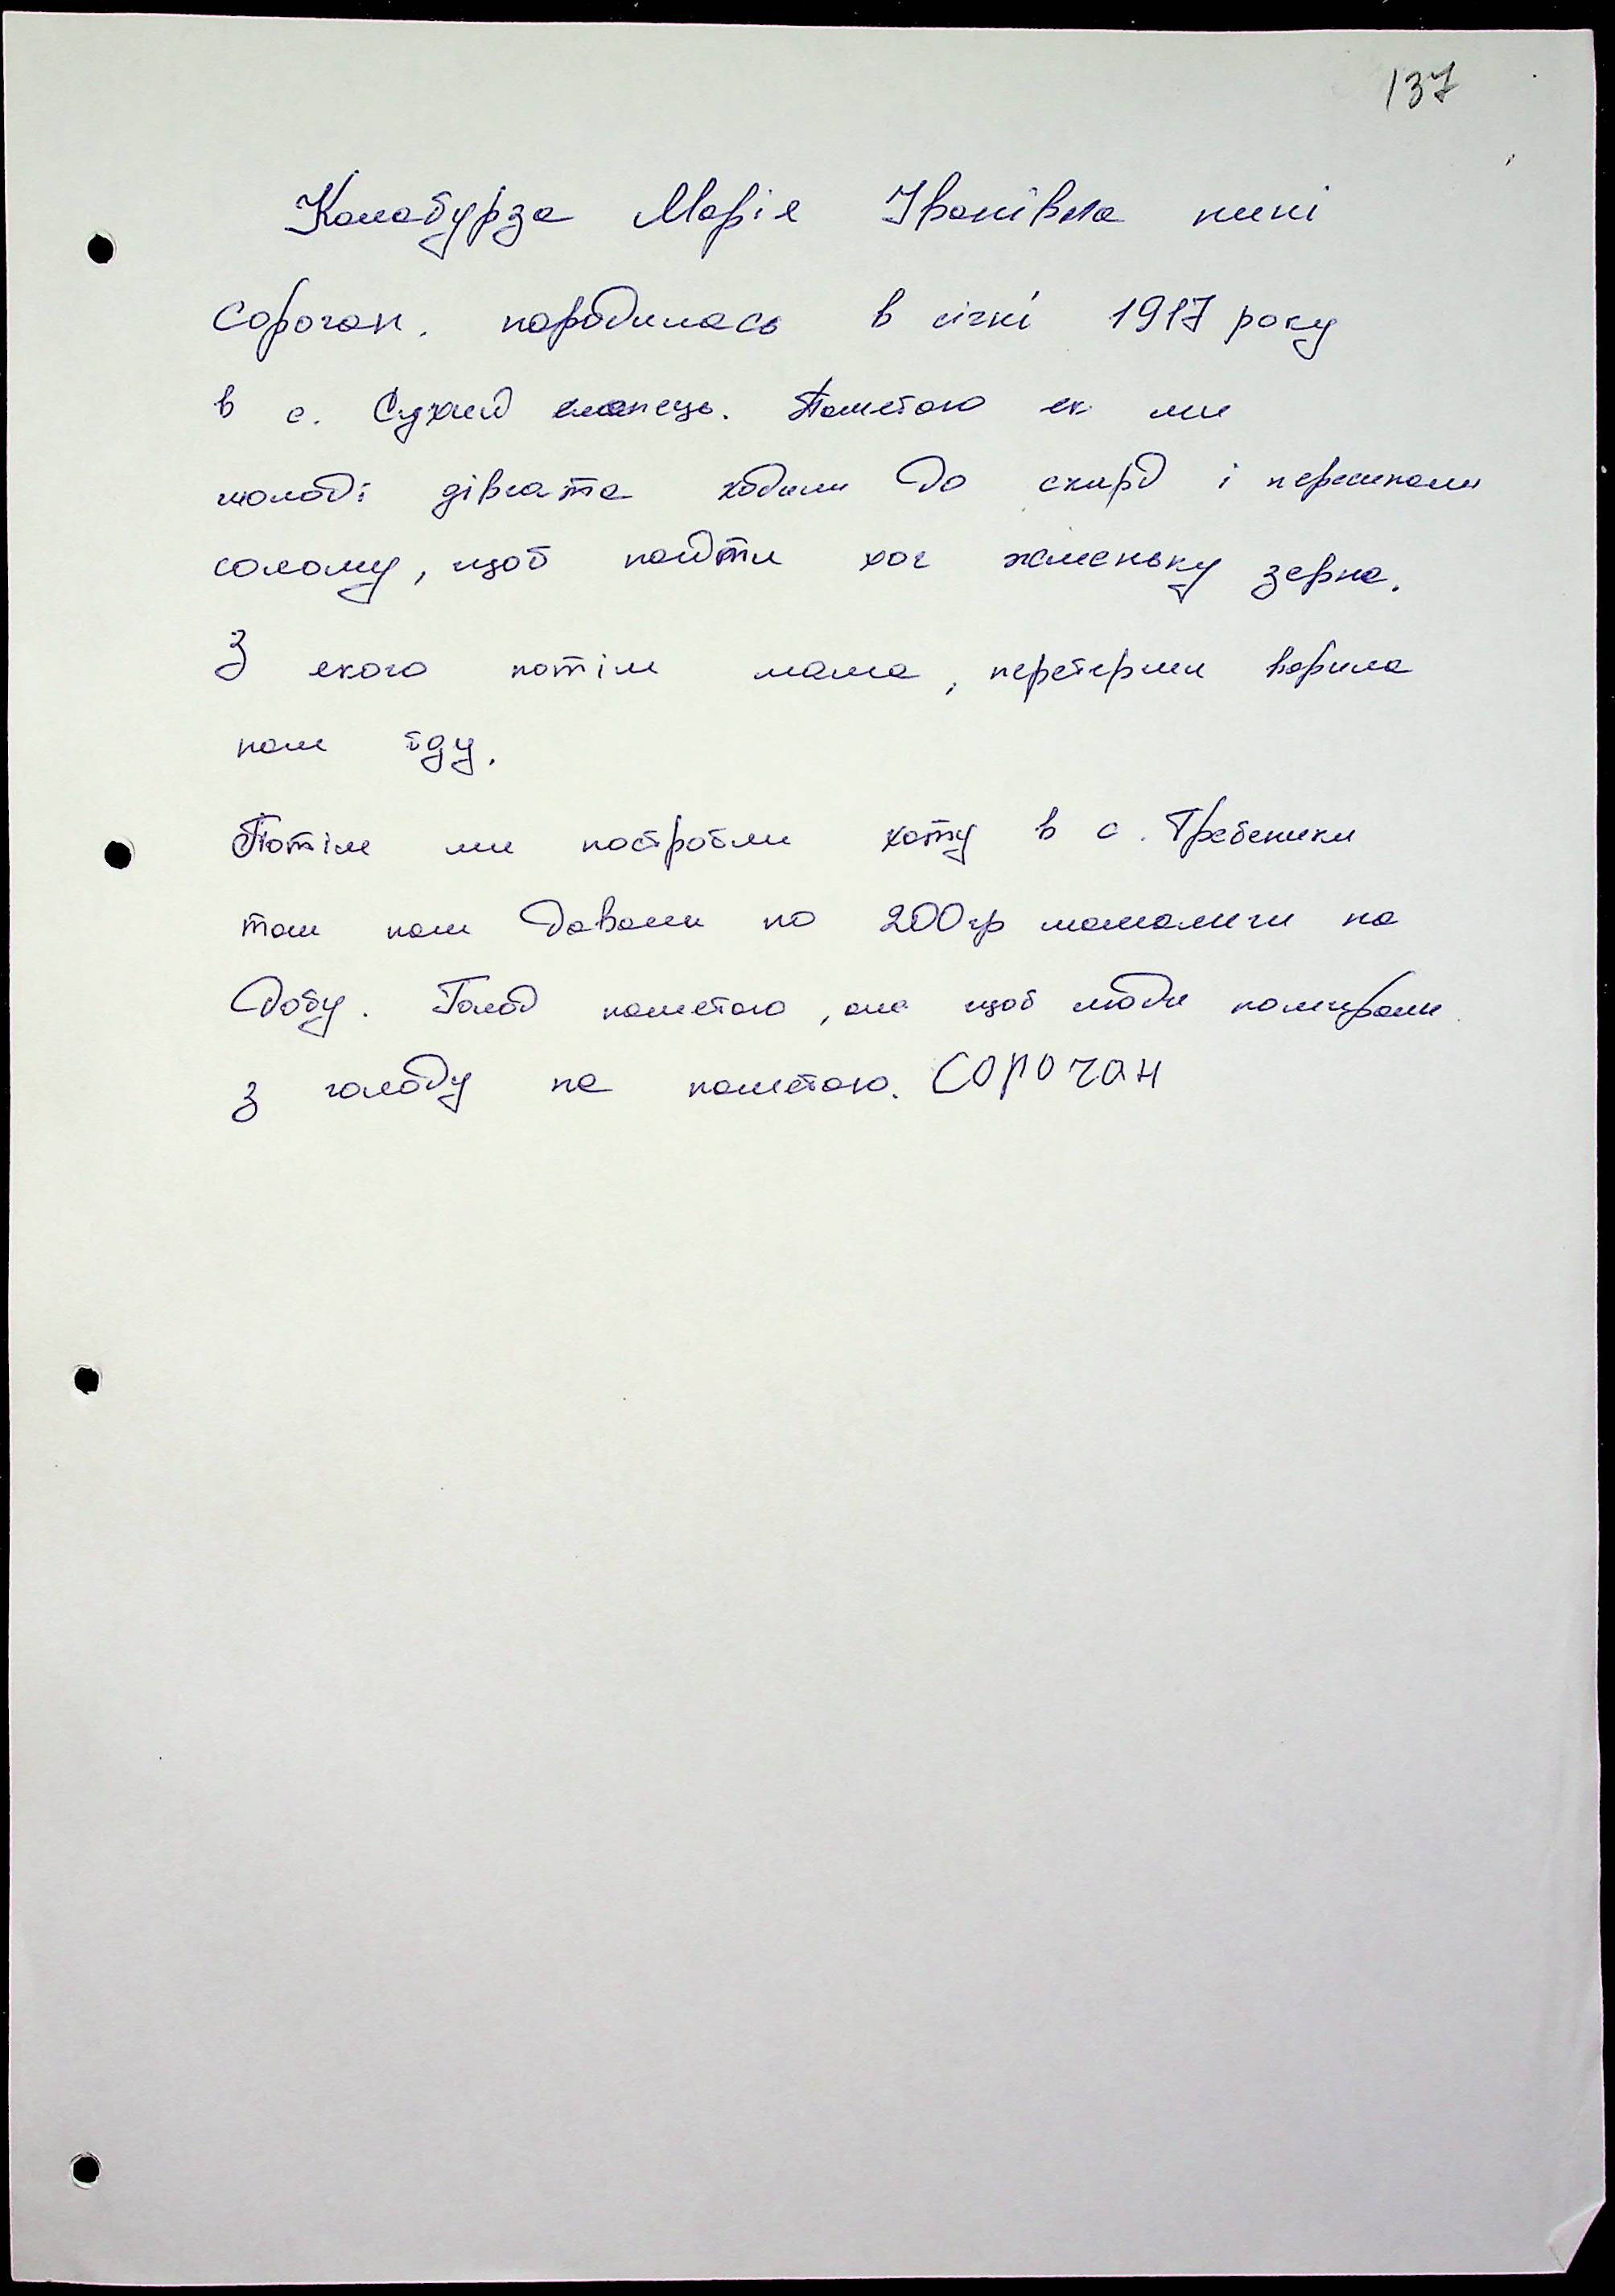 137
Калабурза Марія Іванівна нині
Сорочан. народилась в січні 1917 року
в с. Сухий еланець. Памятаю як ми
молоді дівчата ходили до скирд і пересипали
солому, щоб найти хоч жменьку зерна.
З якого потім мама, перетерши варила
нам їду.
Потім ми построїли хату в с. Гребеники
там нам давали по 200 гр мамалиги на
добу. Голод памятаю, але щоб люди помирали
з голоду не памятаю. Сорочан